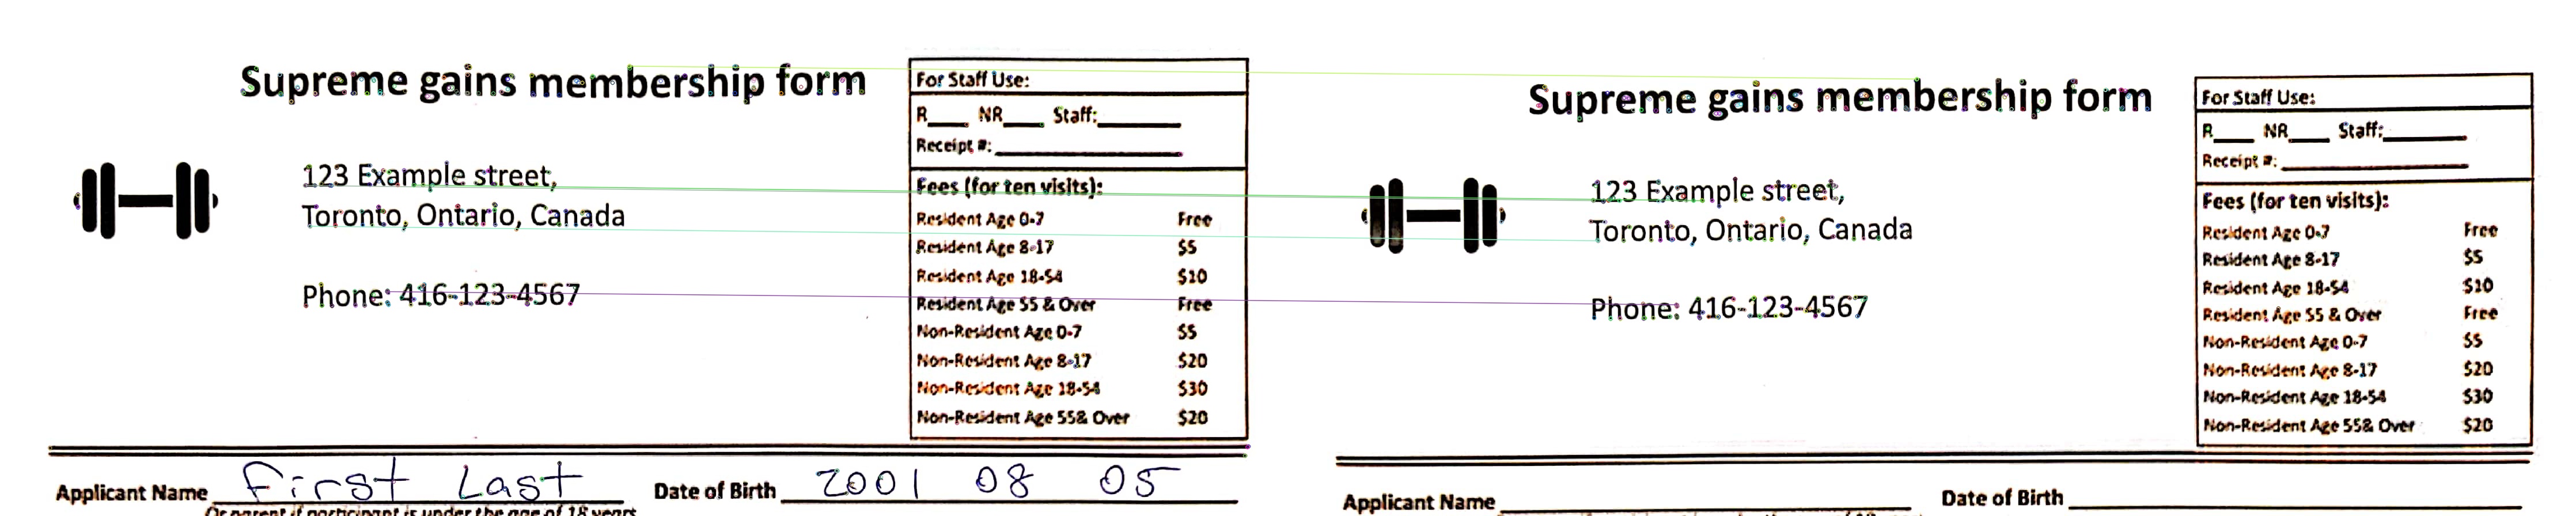 Supreme gains membership form
123 Example street,
Toronto, Ontario, Canada
Phone: 416-123-4567
For Staff Use:
R____ NR____ Staff:________
Receipt #:__________________
Fees (for ten visits):
Resident Age 0-7 Free
Resident Age 8-17 $5
Resident Age 18-54 $10
Resident Age 55 & Over Free
Non-Resident Age 0-7 $5
Non-Resident Age 8-17 $20
Non-Resident Age 18-54 $30
Non-Resident Age 55& Over $20
Applicant Name First Last Date of Birth 2001 08 05
Or parent if participant is under the age of 18 years
Supreme gains membership form
123 Example street,
Toronto, Ontario, Canada
Phone: 416-123-4567
For Staff Use:
R____ NR____ Staff:________
Receipt #:__________________
Fees (for ten visits):
Resident Age 0-7 Free
Resident Age 8-17 $5
Resident Age 18-54 $10
Resident Age 55 & Over Free
Non-Resident Age 0-7 $5
Non-Resident Age 8-17 $20
Non-Resident Age 18-54 $30
Non-Resident Age 55& Over $20
Applicant Name____________ Date of Birth____________